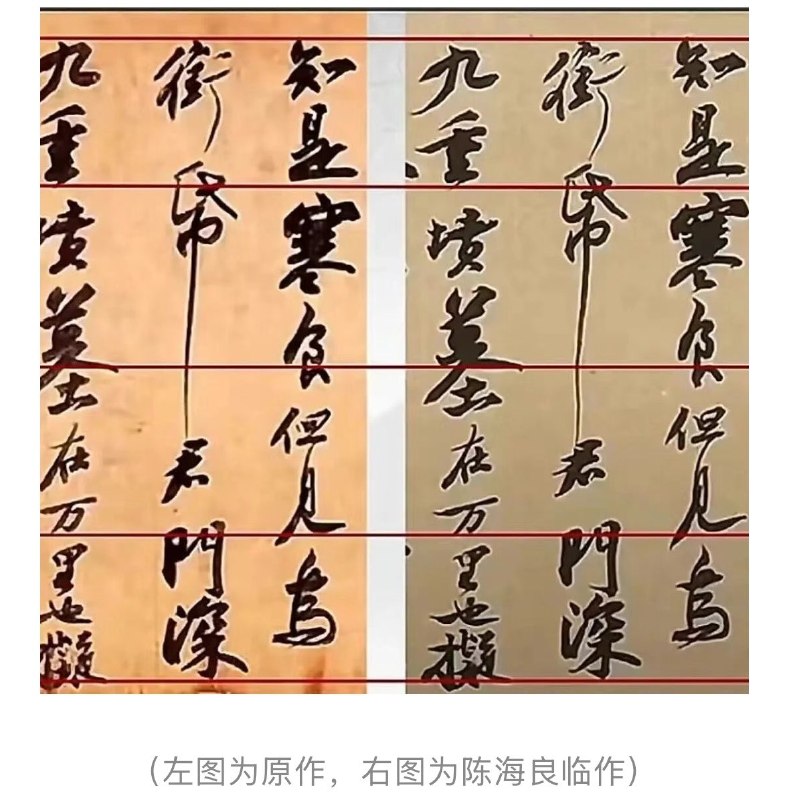 知是寒食但見烏
銜帋君門深
九重墳墓在万里也擬
知是寒食但見烏
銜帋君門深
九重墳墓在万里也擬
（左图为原作，右图为陈海良临作）